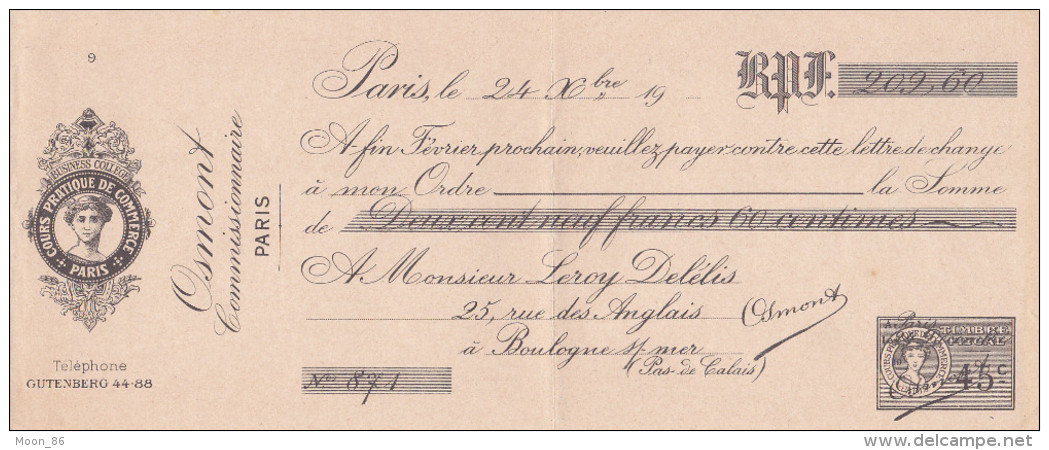 9
BUSINESS COLLEGE
COURS PRATIQUE DE COMMERCE
PARIS
Téléphone
GUTENBERG 44-88
Osmont
Commissionnaire
PARIS
Paris, le 24 Xbre 19
B.P.F. 209,60
A fin Février prochain, veuillez payer contre cette lettre de change
à mon Ordre la Somme
de Deux cent neuf francs 60 centimes
A Monsieur Leroy Delélis
25, rue des Anglais
à Boulogne s/ mer
(Pas-de-Calais)
Osmont
Nos 871
A Paris
TIMBRE
COURS PRATIQUE DE COMMERCE
45 c
Moon_86
www.delcampe.net